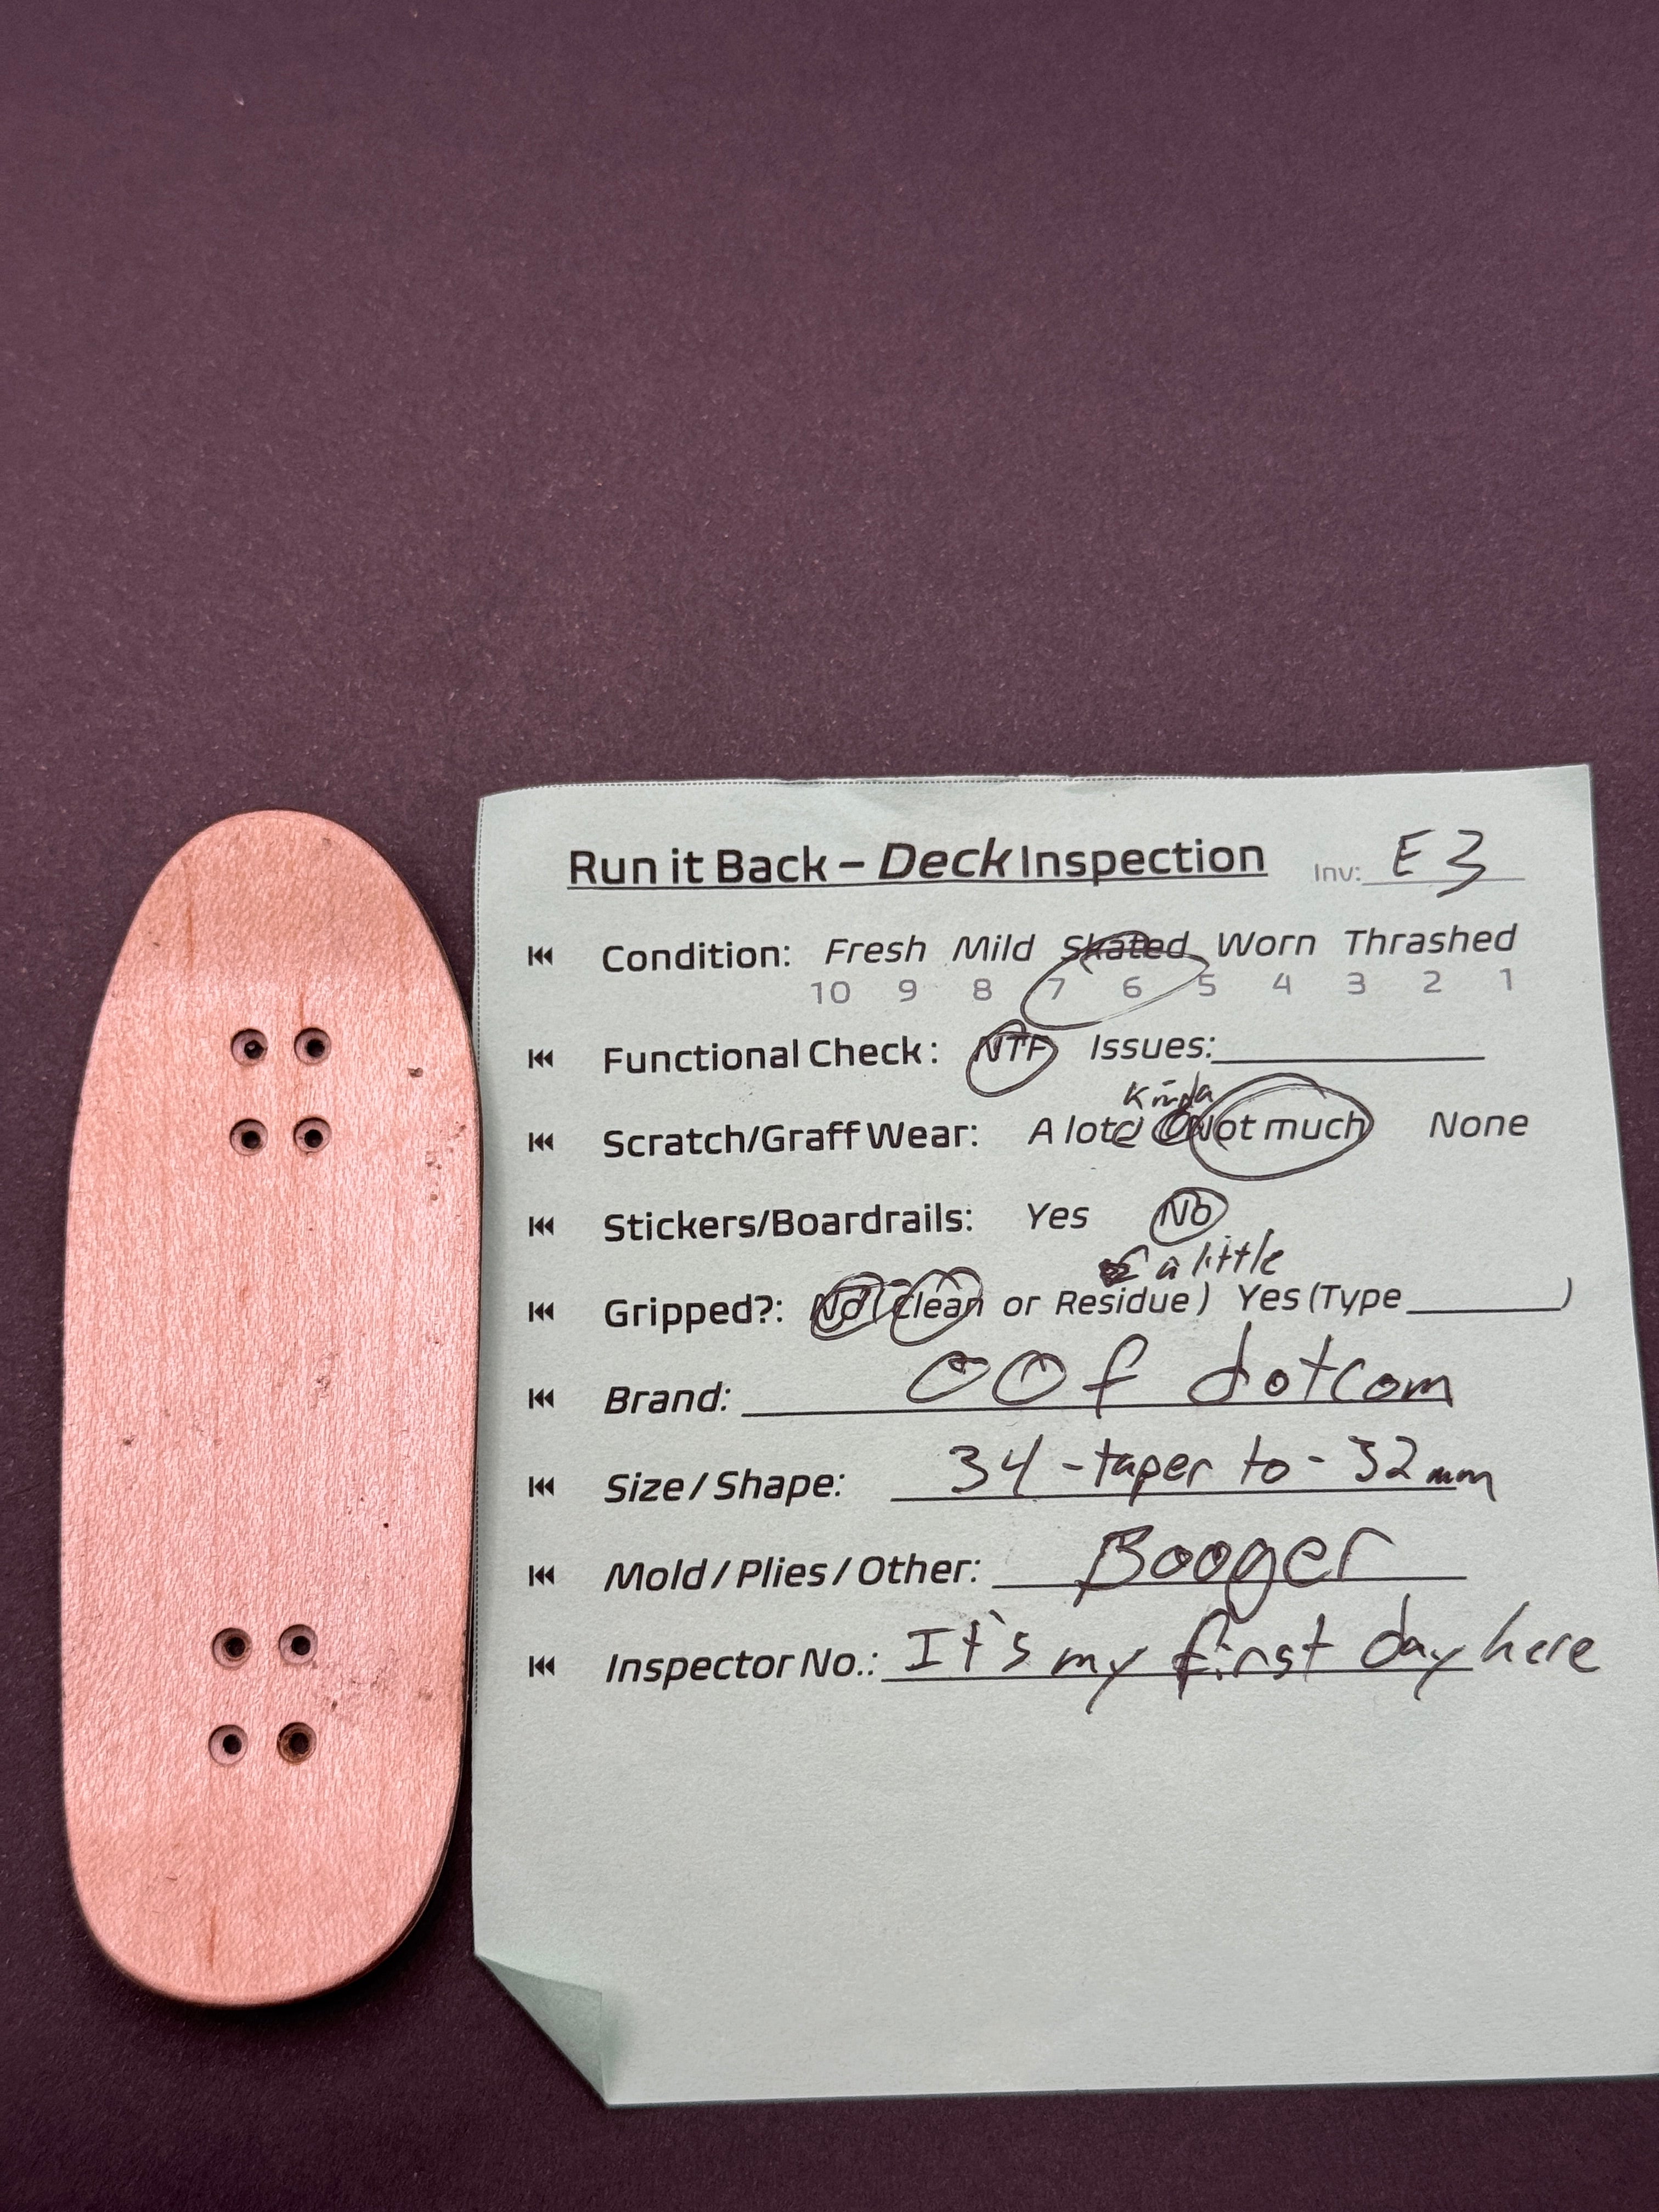 Run it Back – Deck Inspection Inv: E3
Condition: Fresh Mild Skated Worn Thrashed
10 9 8 7 6 5 4 3 2 1
Functional Check: NTF Issues:
Kinda
Scratch/Graff Wear: A lot Not much None
Stickers/Boardrails: Yes No
a little
Gripped?: No (Clean or Residue) Yes (Type )
Brand: OOf dotcom
Size / Shape: 34 - taper to - 32mm
Mold / Plies / Other: Booger
Inspector No.: It's my first day here